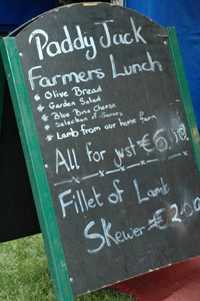 Paddy Jack
Farmers Lunch
* Olive Bread
* Garden Salad
* Blue Brie Cheese
* Selection of
* Lamb from our home farm
All for just €6.50
Fillet of Lamb
Skewer €2.00